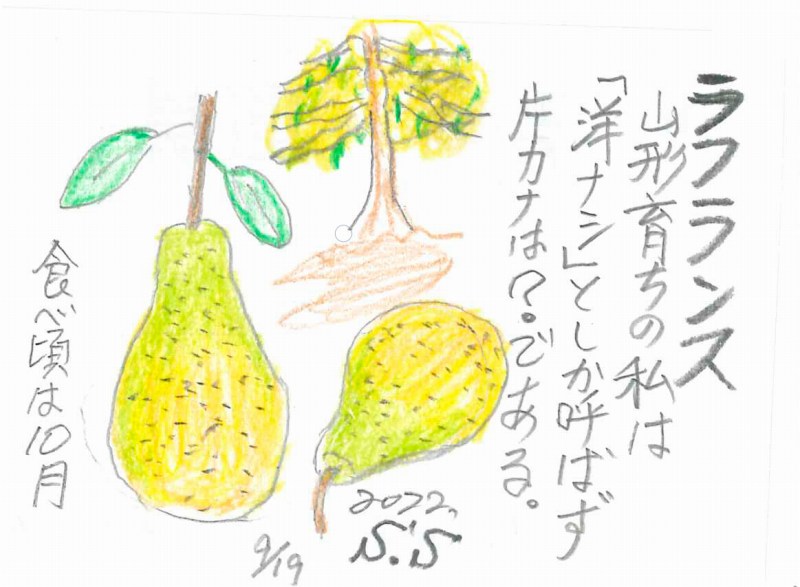 ラフランス
山形育ちの私は
「洋ナシ」としか呼ばず
片カナは?。である。
食べ頃は10月
2022.
S.S
9/19